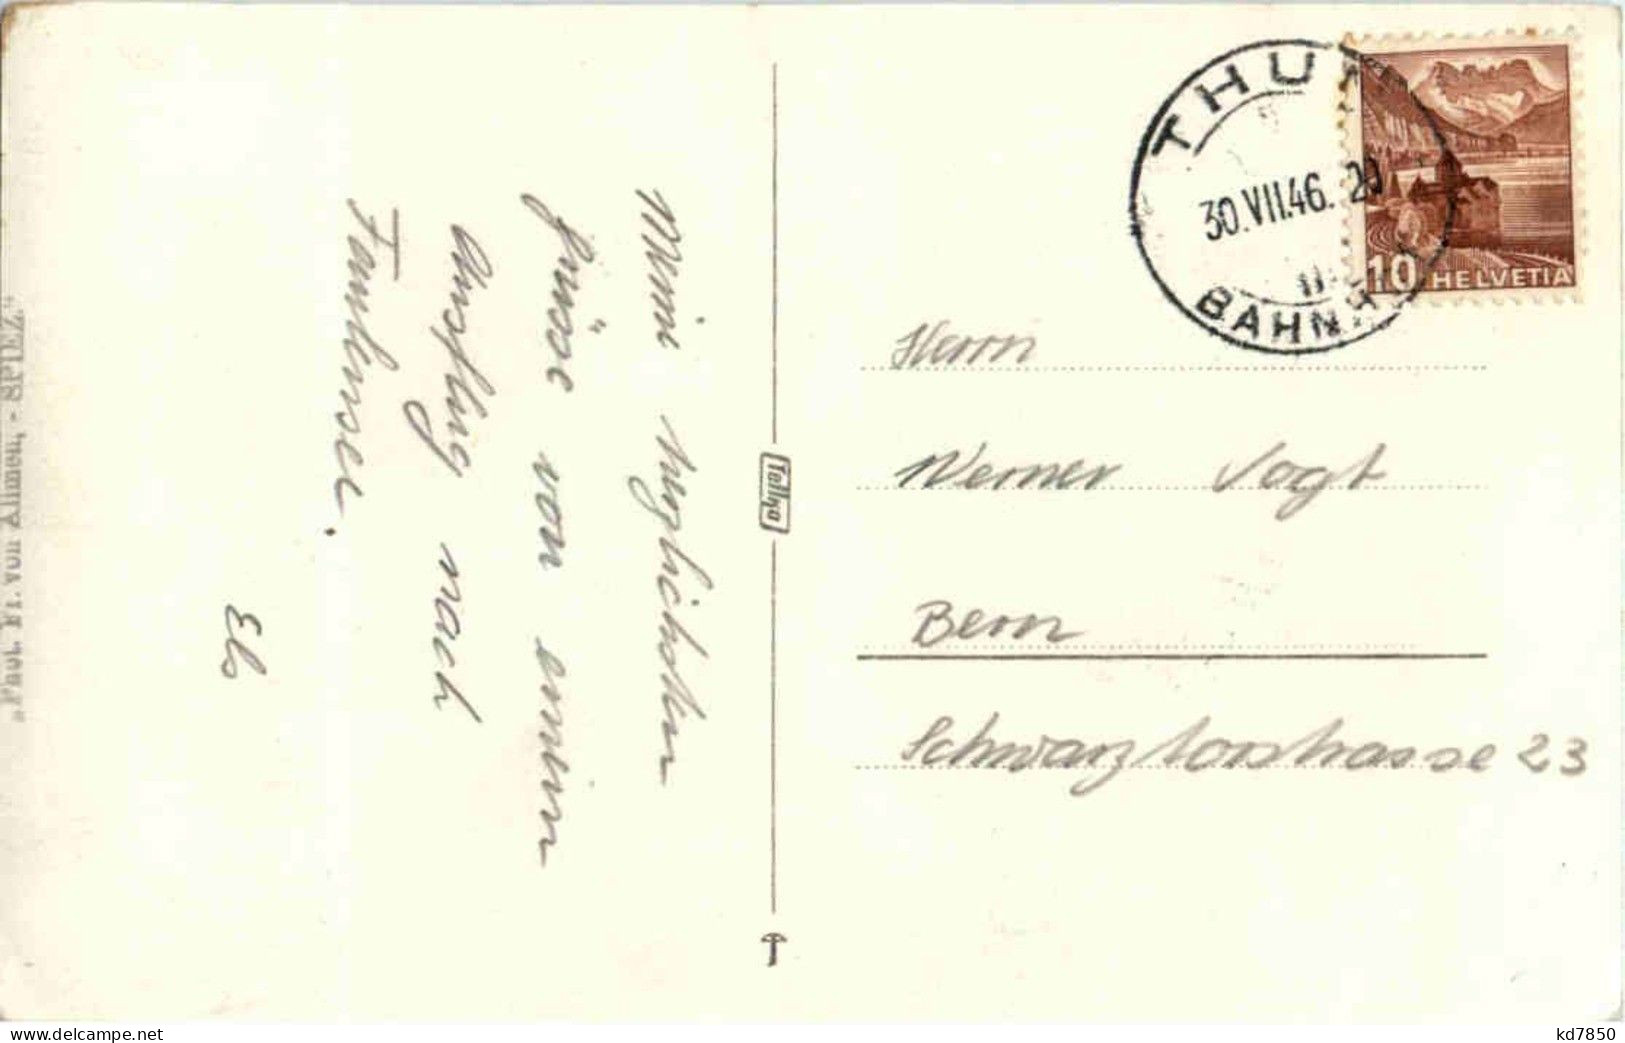 Meine herzlichsten
Grüsse von einem
Ausflug nach
Faulensee.
Els
"Phot. Fr. von Allmen, - SPIEZ"
Tellko
THUN
30.VII.46. 20
BAHNH
10 HELVETIA
Herrn
Werner Vogt
Bern
Schwarztorstrasse 23
www.delcampe.net
kd7850